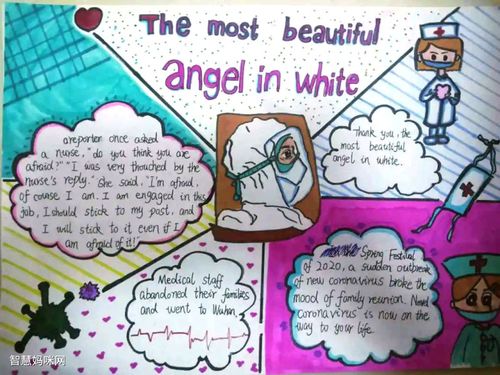 The most beautiful
angel in white
areporter once asked
a nurse, "do you think you are
afraid?" "I was very thouched by the
nurse's reply." She said, "I'm afraid,
of course I am. I am engaged in this
job, I should stick to my post, and
I will stick to it even if I
am afraid of it!"
Thank you, the
most beautiful
angel in white.
Medical staff
abandoned their families
and went to Wuhan,
Spring Festival
of 2020, a sudden outbreak
of new coronavirus broke the
mood of family reunion. Novel
coronavirus is now on the
way to your life.
智慧妈咪网